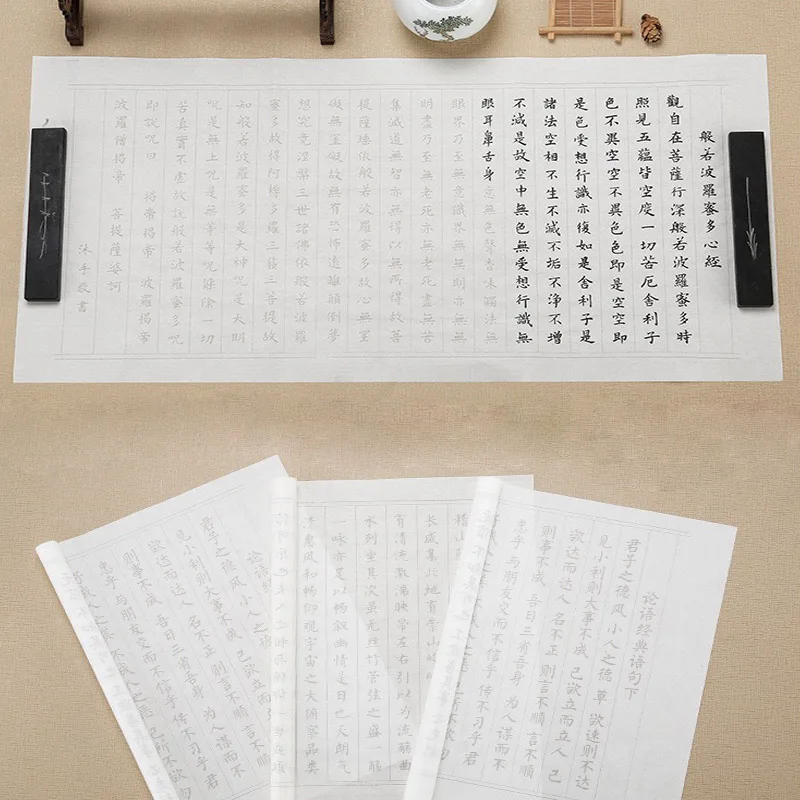 般若波羅蜜多心經
觀自在菩薩行深般若波羅蜜多時
照見五蘊皆空度一切苦厄舍利子
色不異空空不異色色即是空空即
是色受想行識亦復如是舍利子是
諸法空相不生不滅不垢不淨不增
不減是故空中無色無受想行識無
眼耳鼻舌身意無色聲香味觸法無
眼界乃至無意識界無無明亦無無
明盡乃至無老死亦無老死盡無苦
集滅道無智亦無得以無所得故菩
提薩埵依般若波羅蜜多故心無罣
礙無罣礙故無有恐怖遠離顛倒夢
想究竟涅槃三世諸佛依般若波羅
蜜多故得阿耨多羅三藐三菩提故
知般若波羅蜜多是大神咒是大明
咒是無上咒是無等等咒能除一切
苦真實不虛故說般若波羅蜜多咒
即說咒曰 揭帝揭帝 波羅揭帝
波羅僧揭帝 菩提薩婆訶
沐手敬書
论语经典语句下
君子之德风 小人之德 草 欲速则不达
见小利则大事不成 己欲立而立人 己
欲达而达人 名不正 则言不顺 言不顺
则事不成 吾日三省吾身 为人谋而不
忠乎 与朋友交而不信乎 传不习乎 君
有清流激湍映带左右引以为流觞曲
水列坐其次虽无丝竹管弦之盛一觞
一咏亦足以畅叙幽情是日也天朗气
清惠风和畅仰观宇宙之大俯察品类
论语经
君子之德风 小人之德
见小利则大事不成 己欲立而立
欲达而达人 名不正 则言不顺
则事不成 吾日三省吾身 为人谋而不
忠乎 与朋友交而不信乎 传不习乎 君